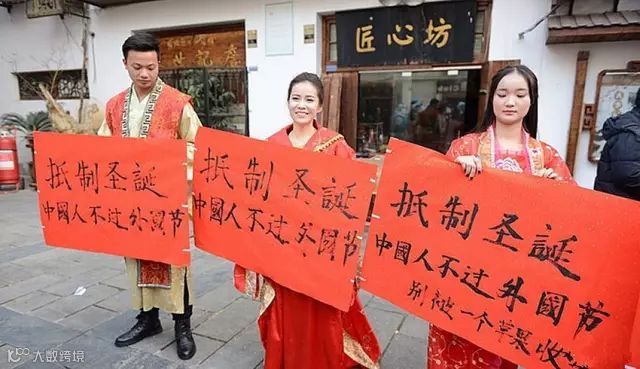 匠心坊
抵制圣誕
中國人不过外國节
抵制圣誕
中國人不过外國节
抵制圣誕
中國人不过外國节
别被一个苹果收
大数跨境